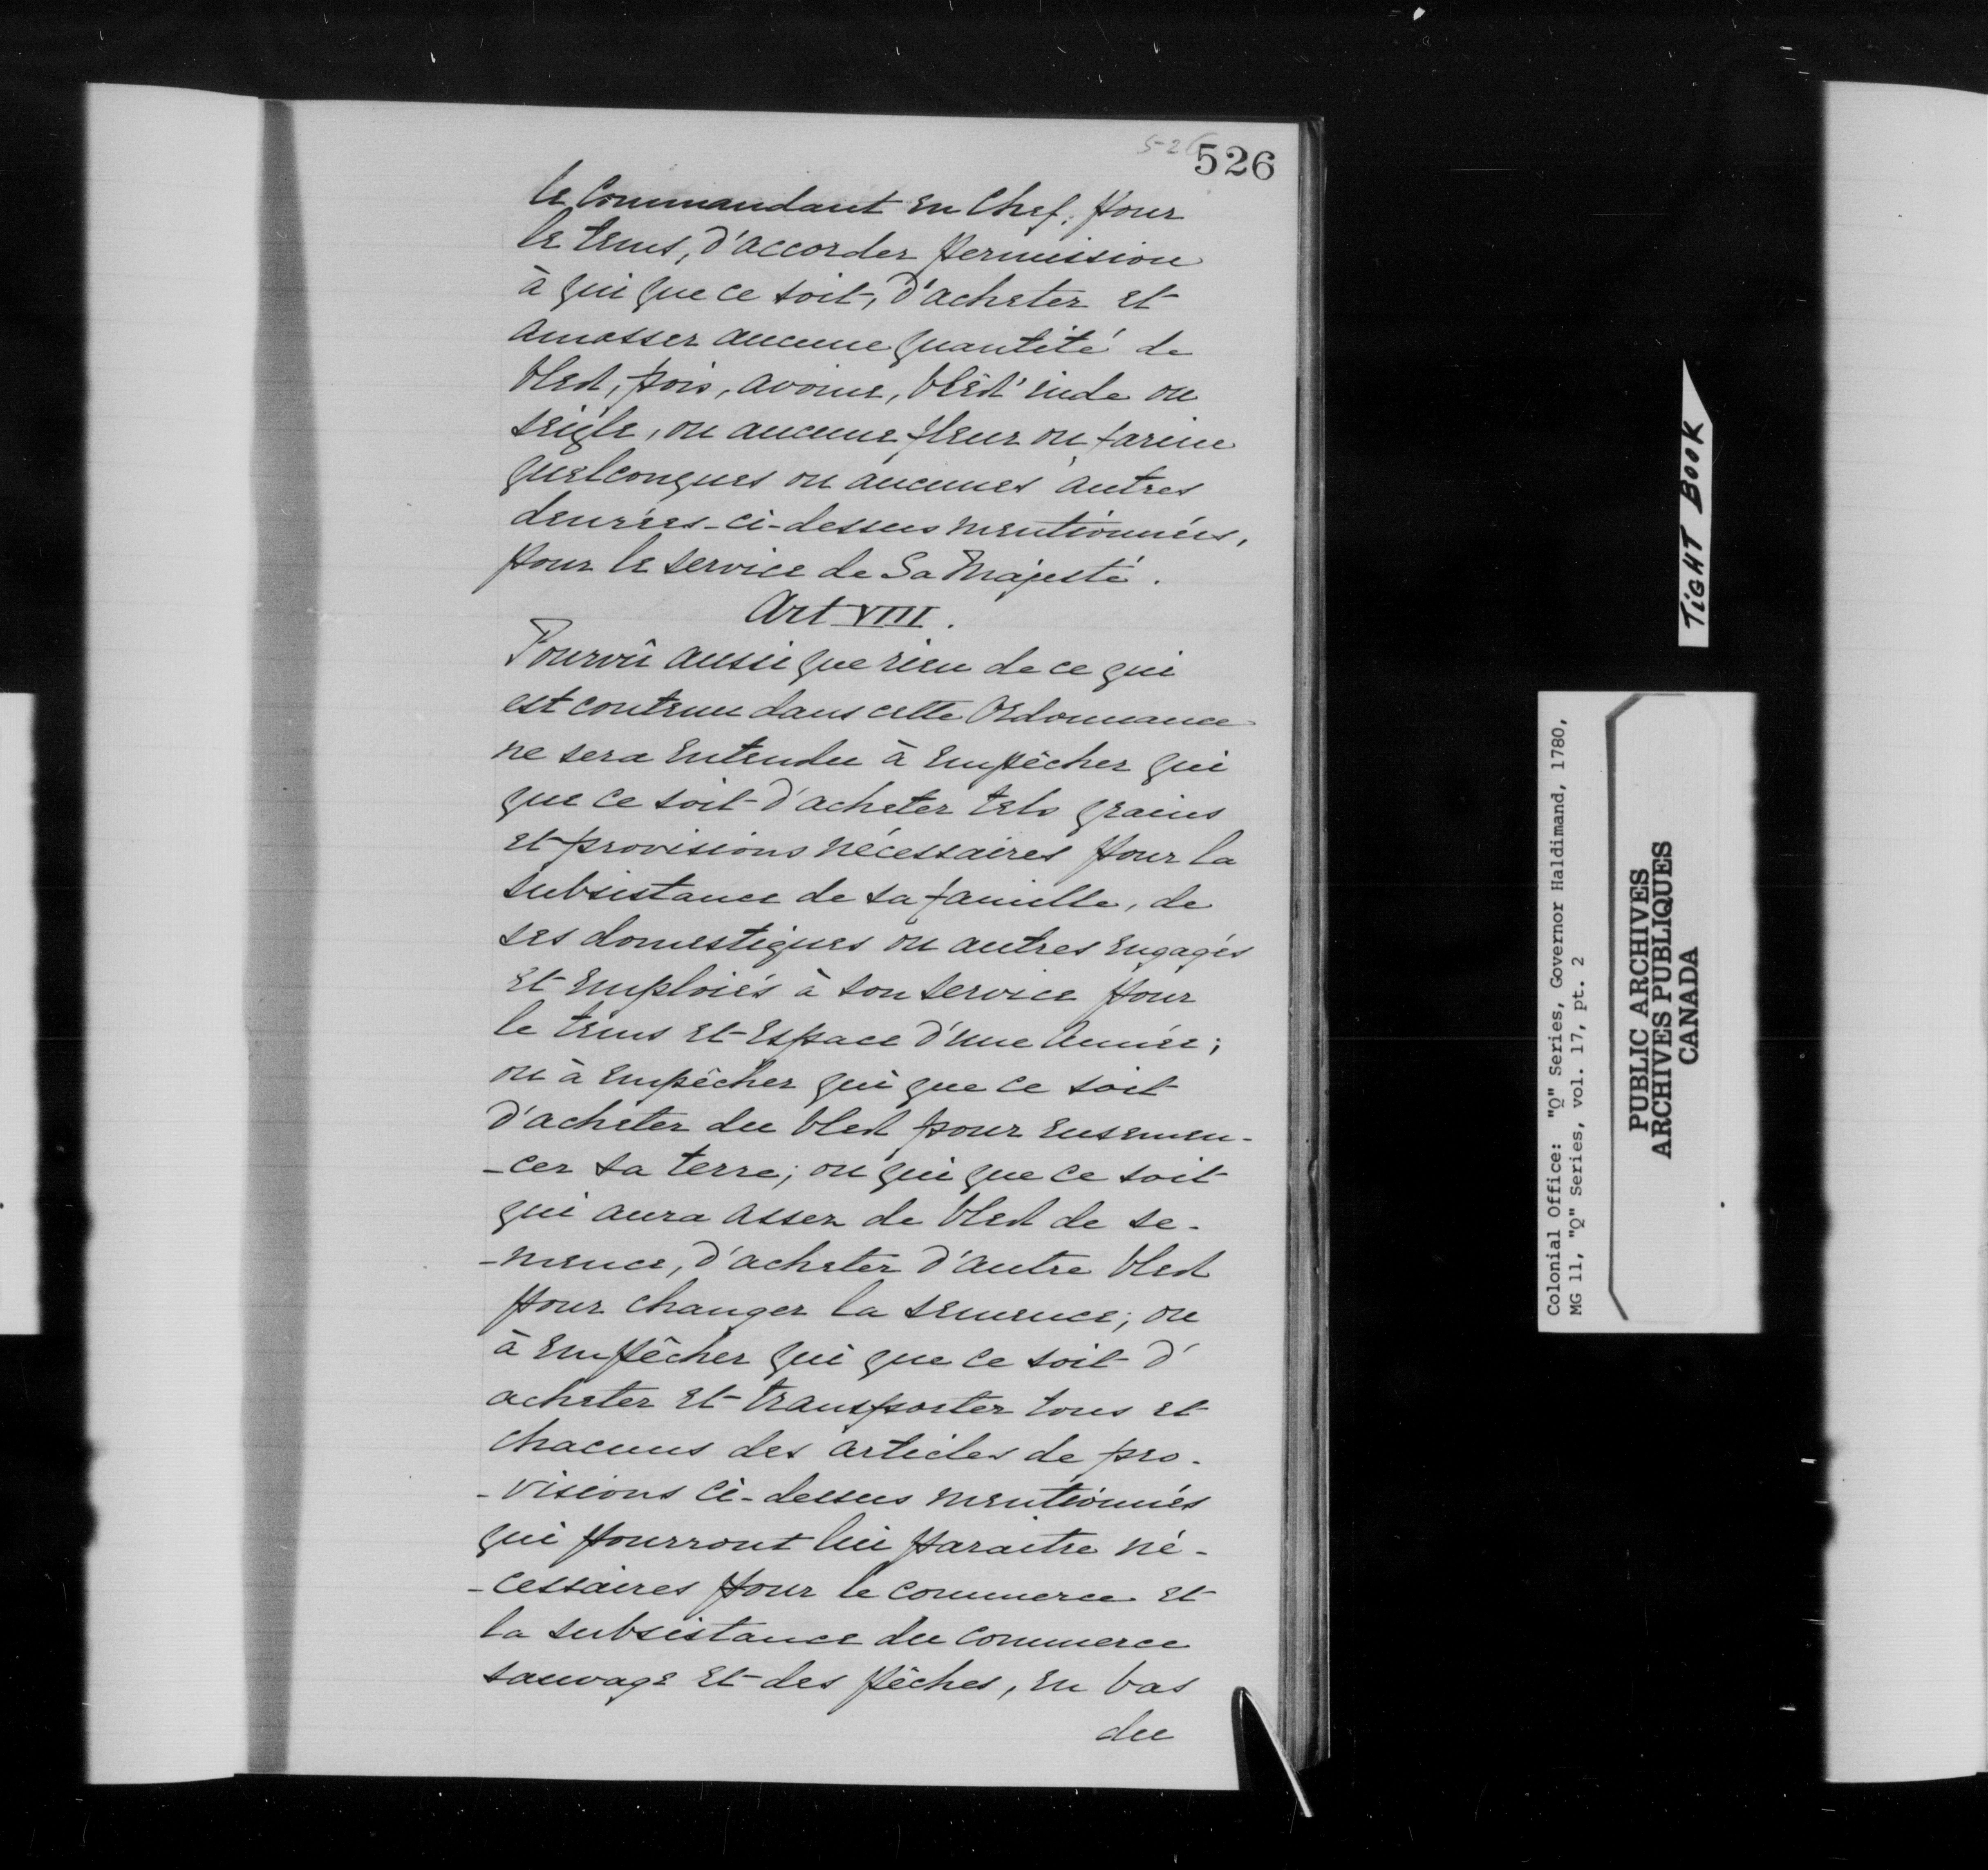 5-26
526
le Commandant en Chef, pour
le tems, d'accorder permission
à qui que ce soit, d'acheter et
amasser aucune quantité de
bled, pois, avoine, blèd'inde ou
seigle, ou aucune fleur ou farine
quelconques ou aucunes autres
denrées-ci-dessus mentionnées,
pour le service de Sa Majesté.
Art VIII.
Pourvû aussi que rien de ce qui
est contenu dans cette Ordonnance
ne sera entendu à empêcher qui
que ce soit d'acheter tels grains
et provisions nécessaires pour la
subsistance de sa famille, de
ses domestiques ou autres engagés
et emploiés à son service pour
le tems et espace d'une année;
ou à empêcher qui que ce soit
d'acheter du bled pour ensemen-
-cer sa terre; ou qui que ce soit
qui aura assez de bled de se-
-mence, d'acheter d'autre bled
pour changer la semence; ou
à empêcher qui que ce soit d'
acheter et transporter tous et
chacuns des articles de pro-
-visions ci-dessus mentionnés
qui pourront lui paraitre né-
-cessaires pour le commerce et
la subsistance du commerce
sauvage et des pêches, en bas
du
TIGHT BOOK
Colonial Office: "Q" Series, Governor Haldimand, 1780,
MG 11, "Q" Series, vol. 17, pt. 2
PUBLIC ARCHIVES
ARCHIVES PUBLIQUES
CANADA